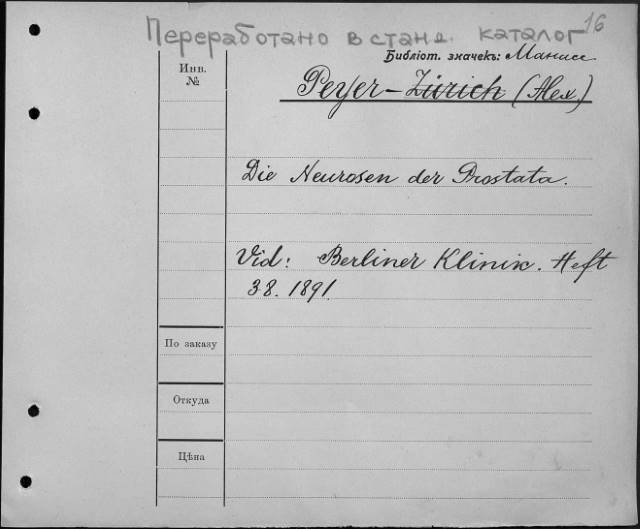 Переработано в станд. каталог 16
Библіот. значекъ:
Инв. №
Peyer-Zürich (Alex.)
Die Neurosen der Prostata.
Vid: Berliner Klinik. Heft
38. 1891.
По заказу
Откуда
Цѣна